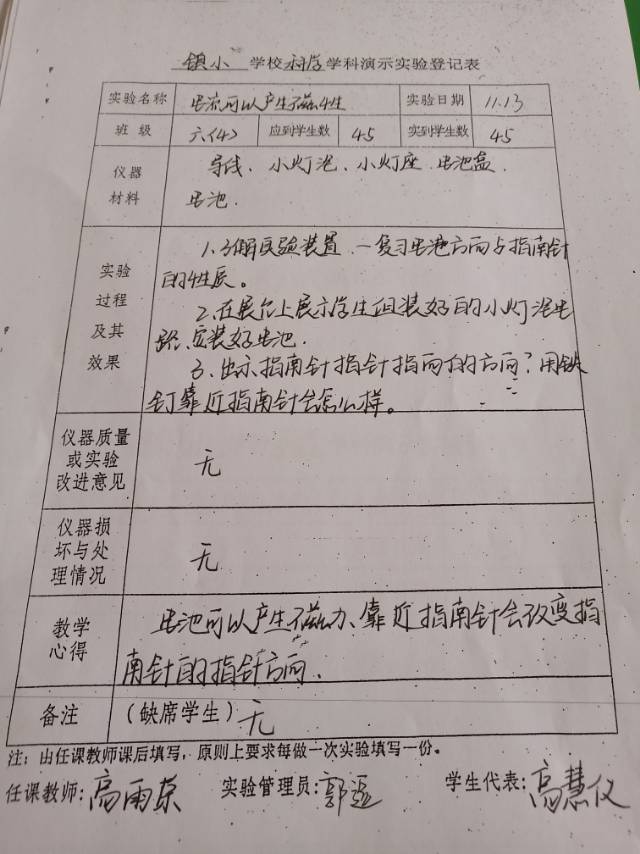 镇小 学校 科学 学科演示实验登记表
实验名称 电流可以产生磁性 实验日期 11.13
班级 六(4) 应到学生数 45 实到学生数 45
仪器材料 导线、小灯泡、小灯座、电池盒、
电池.
实验过程及其效果
1.了解实验装置,一复习电池方向与指南针
的性质。
2.在展台上展示学生组装好的小灯泡电
路、安装好电池.
3、出示指南针指针指向的方向?用铁
钉靠近指南针会怎么样。
仪器质量或实验改进意见 无
仪器损坏与处理情况 无
教学心得 电池可以产生磁力、靠近指南针会改变指
南针的指针方向.
备注 (缺席学生) 无
注:由任课教师课后填写,原则上要求每做一次实验填写一份。
任课教师:高雨 实验管理员:郭 学生代表:高慧仪